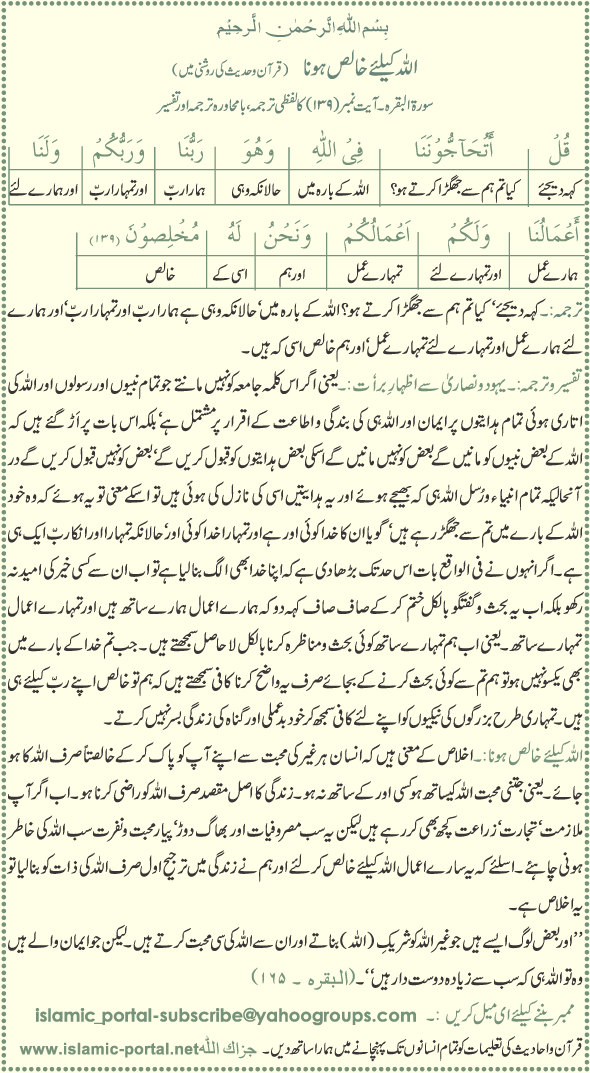 بِسْمِ اللهِ الرَّحْمٰنِ الرَّحِيْمِ
اللہ کیلئے خالص ہونا (قرآن وحدیث کی روشنی میں)
سورۃ البقرہ۔آیت نمبر (۱۳۹) کا لفظی ترجمہ، بامحاورہ ترجمہ اور تفسیر
قُلْ اَتُحَآجُّوْنَنَا فِیْ اللهِ وَهُوَ رَبُّنَا وَرَبُّكُمْ وَلَنَا
کہہ دیجئے کیا تم ہم سے جھگڑا کرتے ہو؟ اللہ کے بارہ میں حالانکہ وہی ہمارا ربّ اور تمہارا ربّ اور ہمارے لئے
أَعْمَالُنَا وَلَكُمْ اَعْمَالُكُمْ وَنَحْنُ لَهٗ مُخْلِصُوْنَ (۱۳۹)
ہمارے عمل اور تمہارے لئے تمہارے عمل اور ہم اسی کے خالص
ترجمہ:۔ کہہ دیجئے‘ کیا تم ہم سے جھگڑا کرتے ہو؟ اللہ کے بارہ میں‘ حالانکہ وہی ہے ہمارا ربّ اور تمہارا ربّ‘ اور ہمارے
لئے ہمارے عمل اور تمہارے لئے تمہارے عمل‘ اور ہم خالص اسی کہ ہیں۔
تفسیر و ترجمہ:۔ یہود و نصاریٰ سے اظہارِ برأت :۔ یعنی اگر اس کلمہ جامعہ کو نہیں مانتے جو تمام نبیوں اور رسولوں اور اللہ کی
اتاری ہوئی تمام ہدایتوں پر ایمان اور اللہ ہی کی بندگی و اطاعت کے اقرار پر مشتمل ہے‘ بلکہ اس بات پر اڑ گئے ہیں کہ
اللہ کے بعض نبیوں کو مانیں گے بعض کو نہیں مانیں گے اسکی بعض ہدایتوں کو قبول کریں گے‘ بعض کو نہیں قبول کریں گے در
آنحالیکہ تمام انبیاء و رُسل اللہ ہی کہ بھیجے ہوئے اور یہ ہدایتیں اسی کی نازل کی ہوئی ہیں تو اسکے معنی تو یہ ہوئے کہ وہ خود
اللہ کے بارے میں تم سے جھگڑ رہے ہیں‘ گویا ان کا خدا کوئی اور ہے اور تمہارا خدا کوئی اور‘ حالانکہ تمہارا اور انکا ربّ ایک ہی
ہے۔ اگر انہوں نے فی الواقع بات اس حد تک بڑھا دی ہے کہ اپنا خدا بھی الگ بنا لیا ہے تو اب ان سے کسی خیر کی امید نہ
رکھو بلکہ اب یہ بحث و گفتگو بالکل ختم کر کے صاف صاف کہہ دو کہ ہمارے اعمال ہمارے ساتھ ہیں اور تمہارے اعمال
تمہارے ساتھ۔ یعنی اب ہم تمہارے ساتھ کوئی بحث و مناظرہ کرنا بالکل لا حاصل سمجھتے ہیں۔ جب تم خدا کے بارے میں
بھی یکسو نہیں ہو تو ہم تم سے کوئی بحث کرنے کے بجائے صرف یہ واضح کرنا کافی سمجھتے ہیں کہ ہم تو خالص اپنے ربّ کیلئے ہی
ہیں۔ تمہاری طرح بزرگوں کی نیکیوں کو اپنے لئے کافی سمجھ کر خود بد عملی اور گناہ کی زندگی بسر نہیں کرتے۔
اللہ کیلئے خالص ہونا:۔ اخلاص کے معنی ہیں کہ انسان ہر غیر کی محبت سے اپنے آپ کو پاک کر کے خالصتاً صرف اللہ کا ہو
جائے۔ یعنی جتنی محبت اللہ کیساتھ ہو کسی اور کے ساتھ نہ ہو۔ زندگی کا اصل مقصد صرف اللہ کو راضی کرنا ہو۔ اب اگر آپ
ملازمت‘ تجارت‘ زراعت کچھ بھی کر رہے ہیں لیکن یہ سب مصروفیات اور بھاگ دوڑ‘ پیار محبت و نفرت سب اللہ کی خاطر
ہونی چاہئے۔ اسلئے کہ یہ سارے اعمال اللہ کیلئے خالص کر لئے اور ہم نے زندگی میں ترجیح اول صرف اللہ کی ذات کو بنا لیا تو
یہ اخلاص ہے۔
’’اور بعض لوگ ایسے ہیں جو غیر اللہ کو شریکِ (اللہ) بناتے اور ان سے اللہ کی سی محبت کرتے ہیں۔ لیکن جو ایمان والے ہیں
وہ تو اللہ ہی کہ سب سے زیادہ دوست دار ہیں‘‘۔ (البقرہ ۔ ۱۶۵)
ممبر بننے کیلئے ای میل کریں :۔ islamic_portal-subscribe@yahoogroups.com
قرآن و احادیث کی تعلیمات کو تمام انسانوں تک پہنچانے میں ہمارا ساتھ دیں۔ جزاك الله www.islamic-portal.net